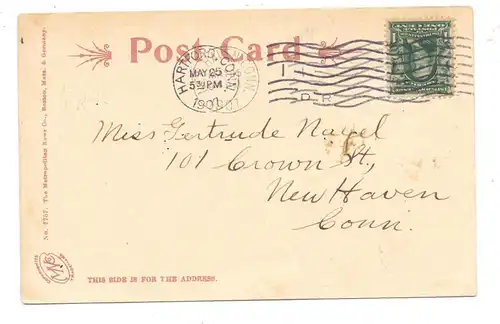 Post Card
HARTFORD, CONN.
MAY 25
5 30 PM
1907
Miss Gertrude Nagel
101 Crown St,
New Haven
Conn.
No. 7757. The Metropolitan News Co., Boston, Mass. & Germany.
THIS SIDE IS FOR THE ADDRESS.